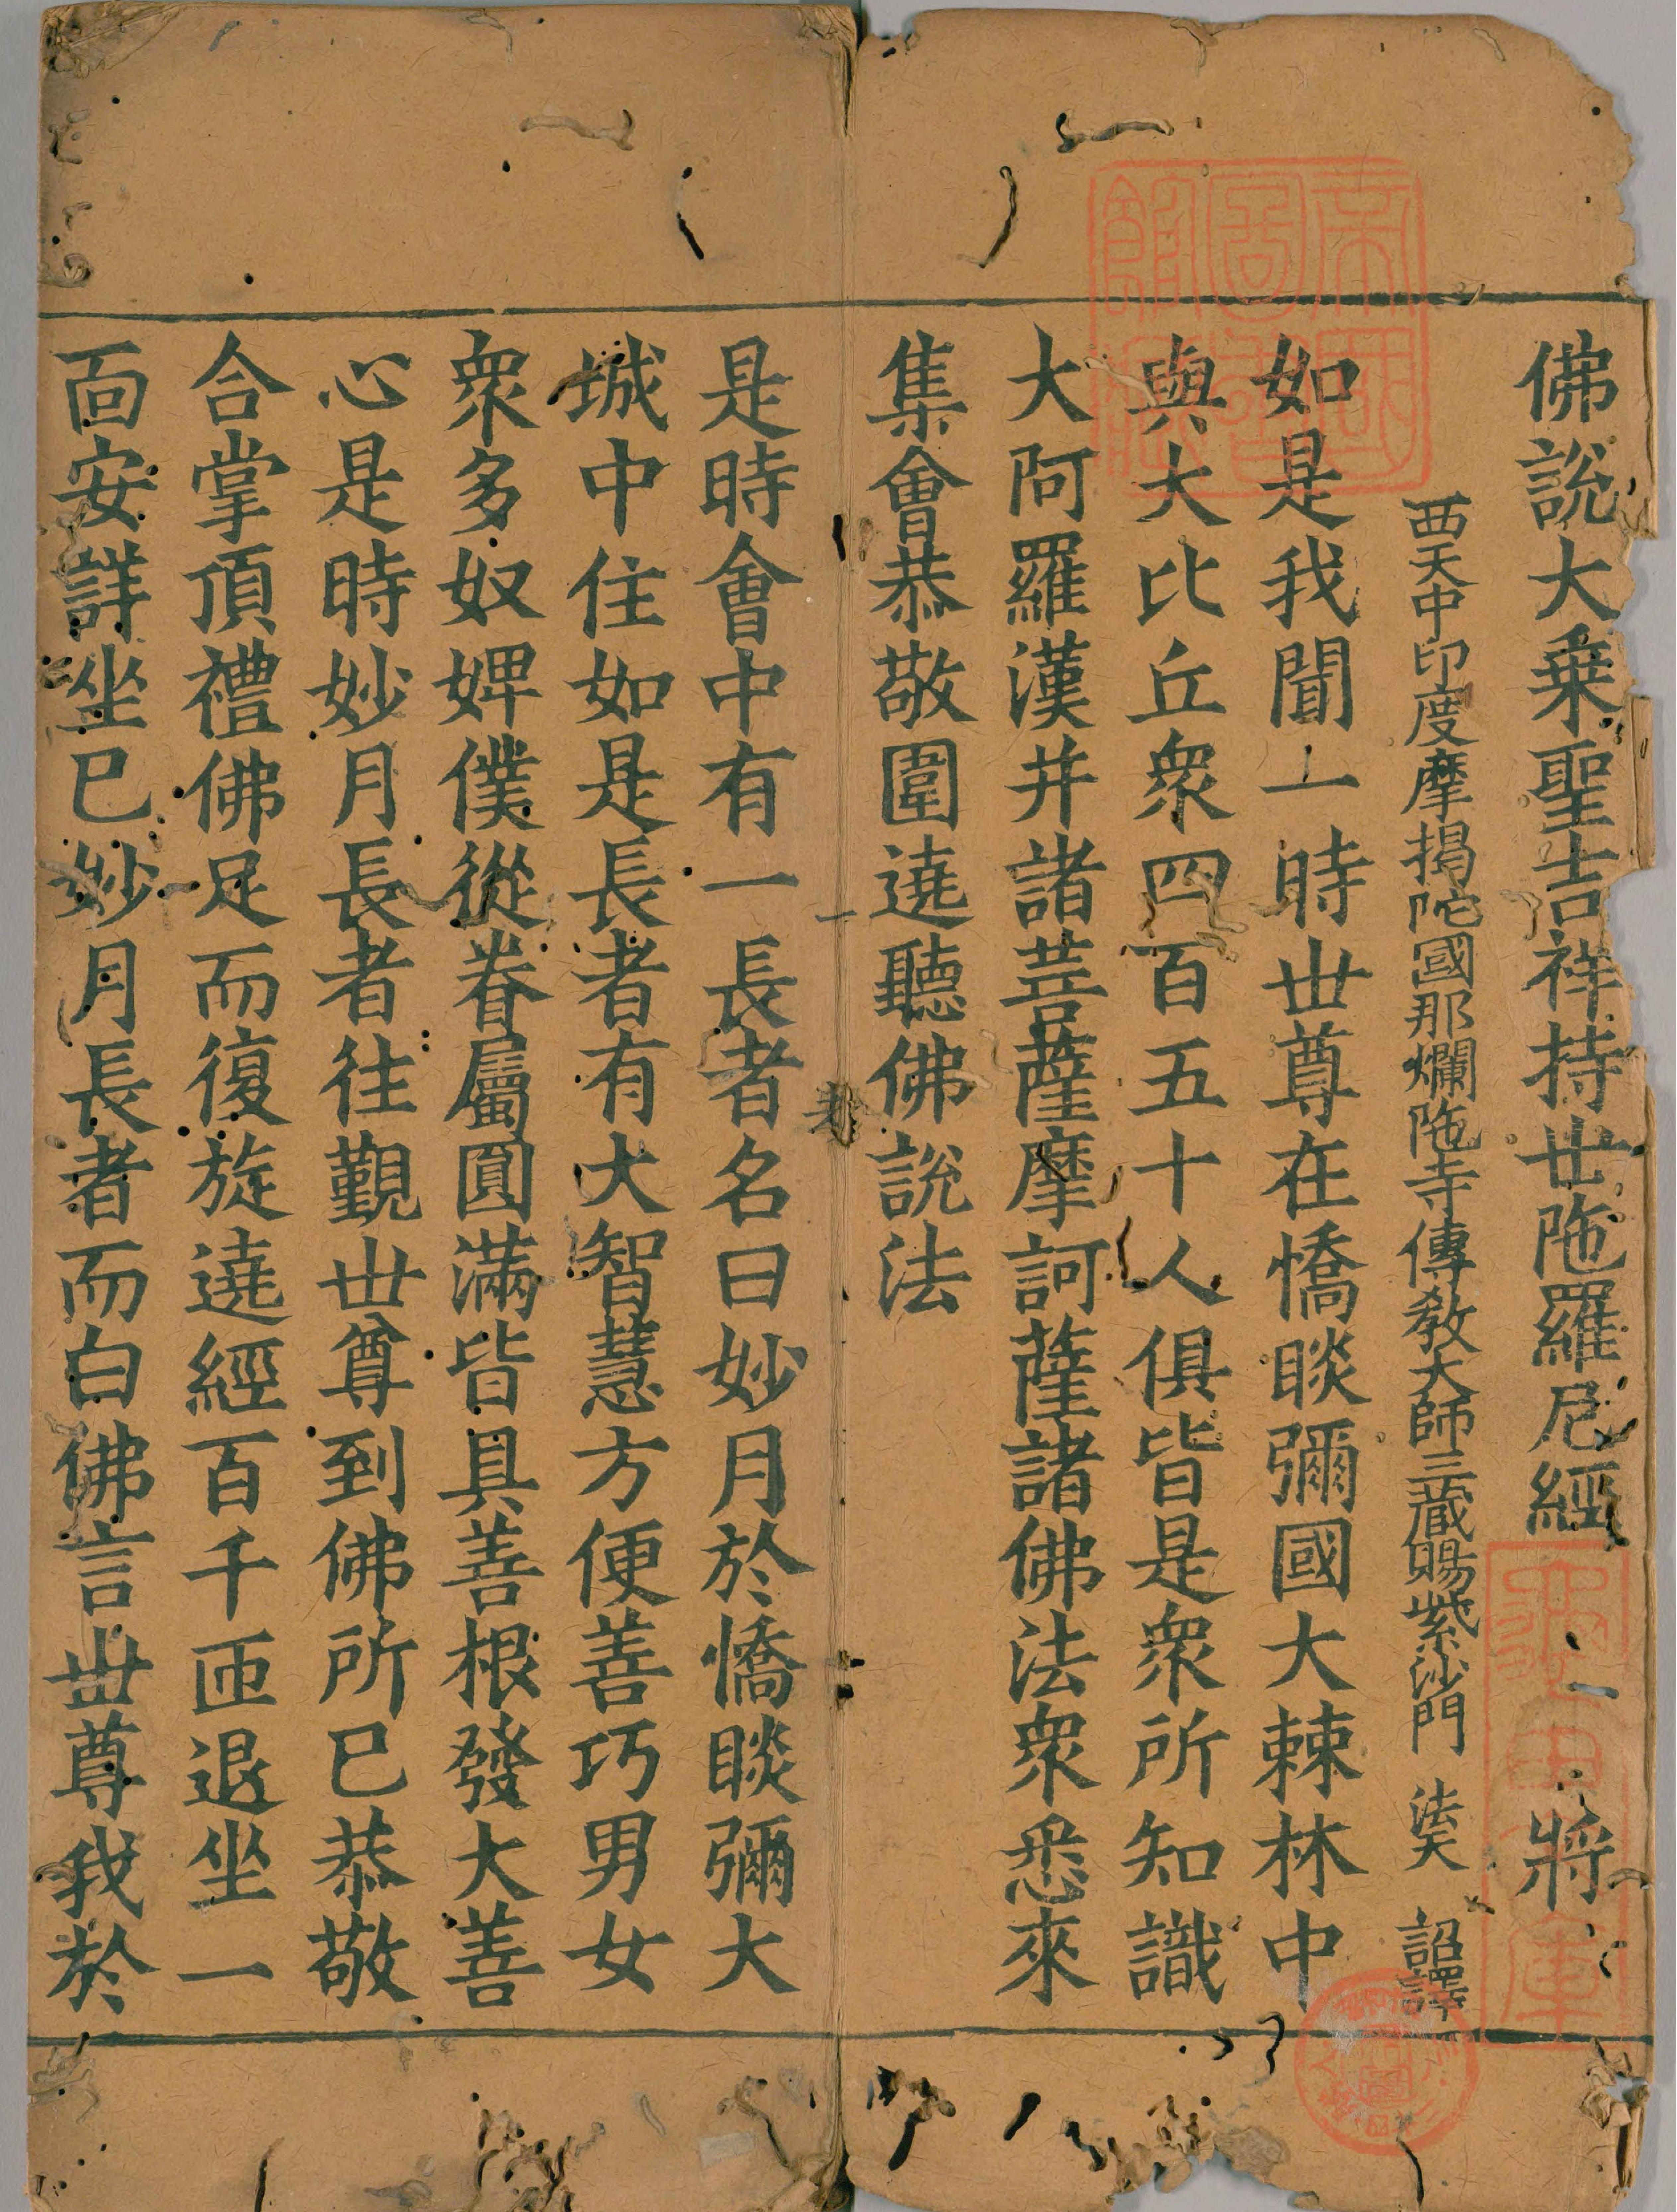 佛說大乗聖吉祥持世陁羅尼經 將
西天中印度摩揭陀國那爛陁寺傳教大師三藏賜紫沙門 法天 詔譯
如是我聞一時世尊在憍睒彌國大棘林中
與大比丘衆四百五十人俱皆是衆所知識
大阿羅漢并諸菩薩摩訶薩諸佛法衆悉來
集會恭敬圍遶聽佛說法
是時會中有一長者名曰妙月於憍睒彌大
城中住如是長者有大智慧方便善巧男女
衆多奴婢僕從眷屬圓滿皆具善根發大善
心是時妙月長者往觀世尊到佛所已恭敬
合掌頂禮佛足而復旋遶經百千匝退坐一
面安詳坐已妙月長者而白佛言世尊我於
帝國圖書館藏